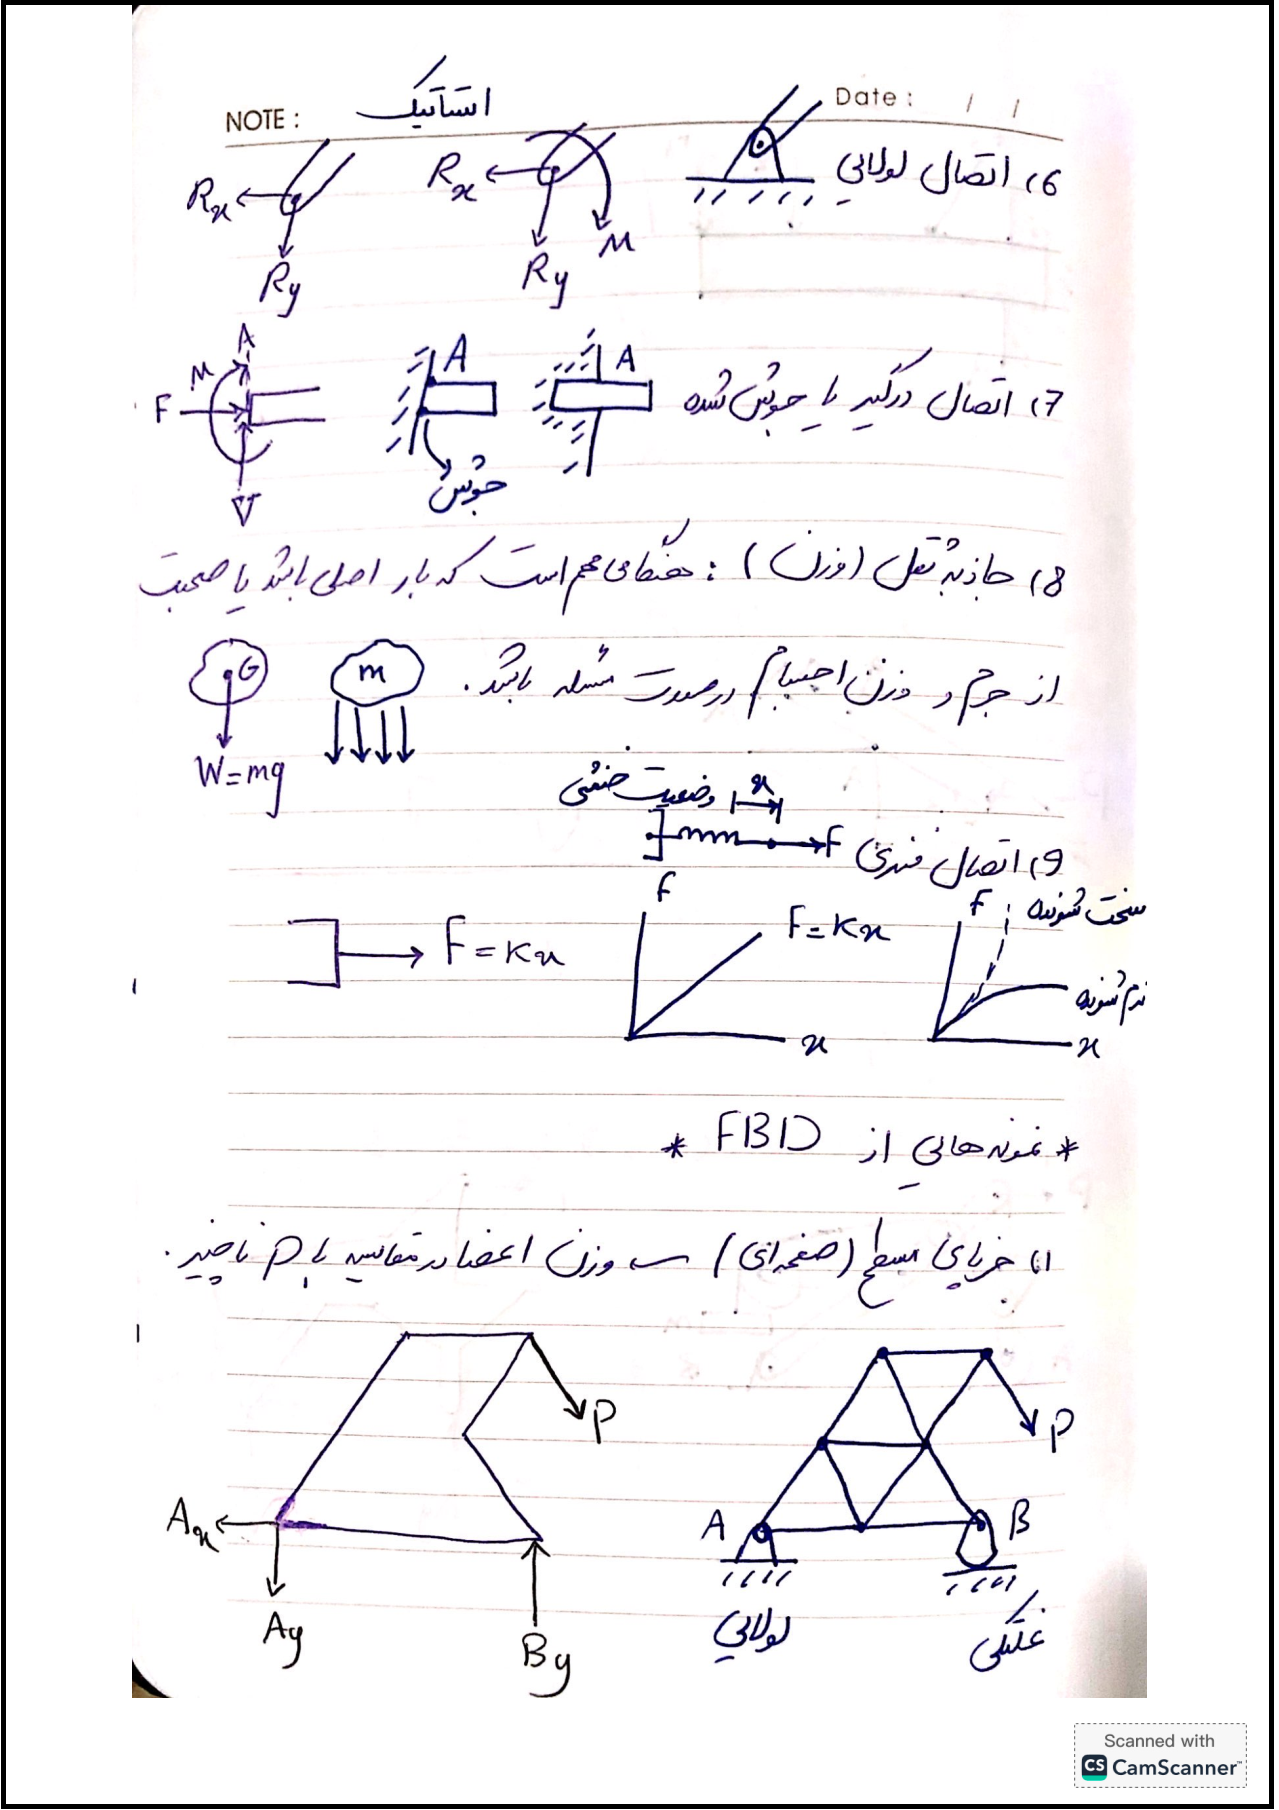 NOTE :
استاتیک
Date : / /
6) اتصال لولایی
Rx
Ry
Rx
Ry
M
7) اتصال درگیر یا جوش شده
A
A
جوش
A
M
F
V
8) جاذبه ثقل (وزن) : هنگامی مهم است که بار اصلی باشد یا صحبت
از جرم و وزن اجسام در صورت مسئله باشد.
m
G
W=mg
9) اتصال فنری
وضعیت خنثی
x
F
F
سخت شونده
نرم شونده
x
F
F=Kx
x
F=Kx
* نمونه هایی از FBD *
1) خرپای مسطح (صفحه ای) ← وزن اعضا در مقایسه با P ناچیز.
P
A
B
لولایی
غلتکی
P
Ax
Ay
By
Scanned with
CS CamScanner